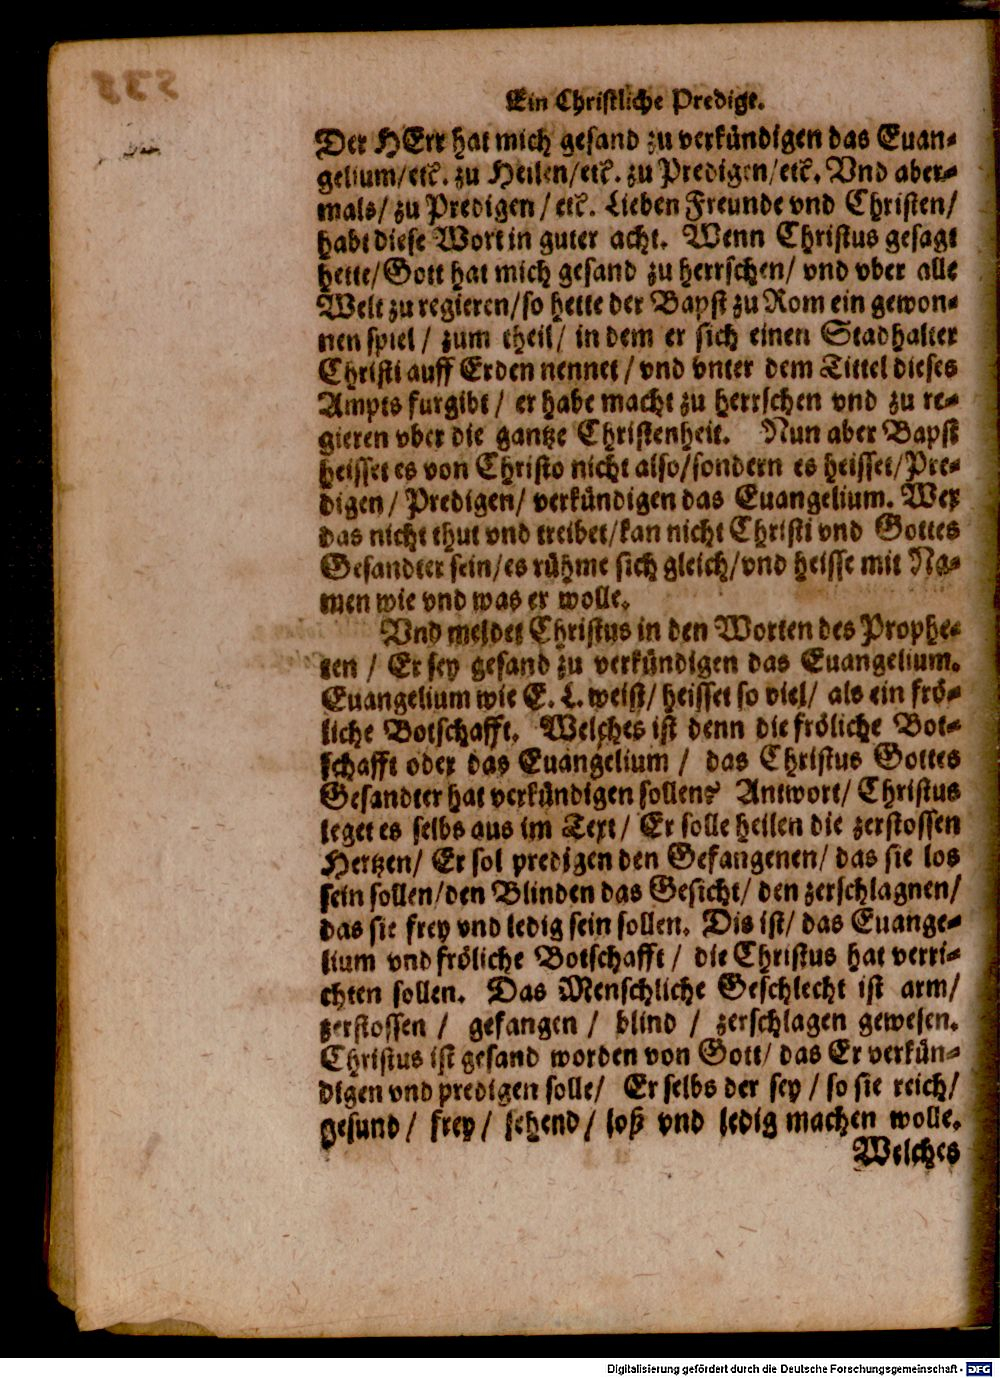 Ein Christliche Predigt.
Der HErr hat mich gesand zu verkündigen das Euan-
gelium/etc. zu Heilen/etc. zu Predigen/etc. Vnd aber-
mals/ zu Predigen / etc. Lieben Freunde vnd Christen/
habt diese Wort in guter acht. Wenn Christus gesagt
hette/Gott hat mich gesand zu herrschen/ vnd vber alle
Welt zu regieren/so hette der Bapst zu Rom ein gewon-
nen spiel / zum theil/ in dem er sich einen Stadhalter
Christi auff Erden nennet / vnd vnter dem Tittel dieses
Ampts furgibt / er habe macht zu herrschen vnd zu re-
gieren vber die gantze Christenheit. Nun aber Bapst
heisset es von Christo nicht also/sondern es heisset/Pre-
digen/ Predigen/ verkündigen das Euangelium. Wer
das nicht thut vnd treibet/kan nicht Christi vnd Gottes
Gesandter sein/es rühme sich gleich/vnd heisse mit Na-
men wie vnd was er wolle.
Vnd meldet Christus in den Worten des Prophe-
ten / Er sey gesand zu verkündigen das Euangelium.
Euangelium wie E. L. weist/ heisset so viel/ als ein frö-
liche Botschafft. Welches ist denn die fröliche Bot-
schafft oder das Euangelium / das Christus Gottes
Gesandter hat verkündigen sollen? Antwort/ Christus
leget es selbs aus im Text/ Er solle heilen die zerstossen
Hertzen/ Er sol predigen den Gefangenen/ das sie los
sein sollen/den Blinden das Gesicht/ den zerschlagnen/
das sie frey vnd ledig sein sollen. Dis ist/ das Euange-
lium vnd fröliche Botschafft / die Christus hat verri-
chten sollen. Das Menschliche Geschlecht ist arm/
zerstossen / gefangen / blind / zerschlagen gewesen.
Christus ist gesand worden von Gott/ das Er verkün-
digen vnd predigen solle/ Er selbs der sey / so sie reich/
gesund / frey / sehend / loß vnd ledig machen wolle.
Welches
Digitalisierung gefördert durch die Deutsche Forschungsgemeinschaft - DFG